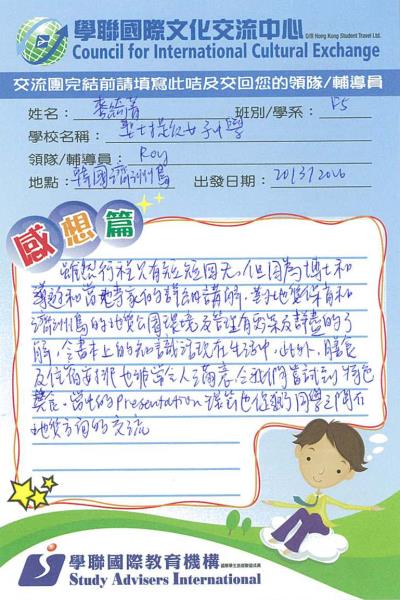 學聯國際文化交流中心 O/B Hong Kong Student Travel Ltd.
Council for International Cultural Exchange
交流團完結前請填寫此咭及交回您的領隊/輔導員
姓名： 班別/學系： F5
學校名稱： 女子中學
領隊/輔導員： Roy
地點： 韓國濟洲島 出發日期：
感想篇
雖然行程只有短短四天，但因為博士和
導遊和當地專家的講解，對地質保育和
濟洲島的地質公園環境及管理有更深及詳盡的了
解，令書本上的知識活現在生活中，此外，膳食
及住宿安排也非常令人滿意，令我們嘗試到特色
美食。當中的Presentation 環節也促夠同學之間在
地質方面的交流
學聯國際教育機構
Study Advisers International